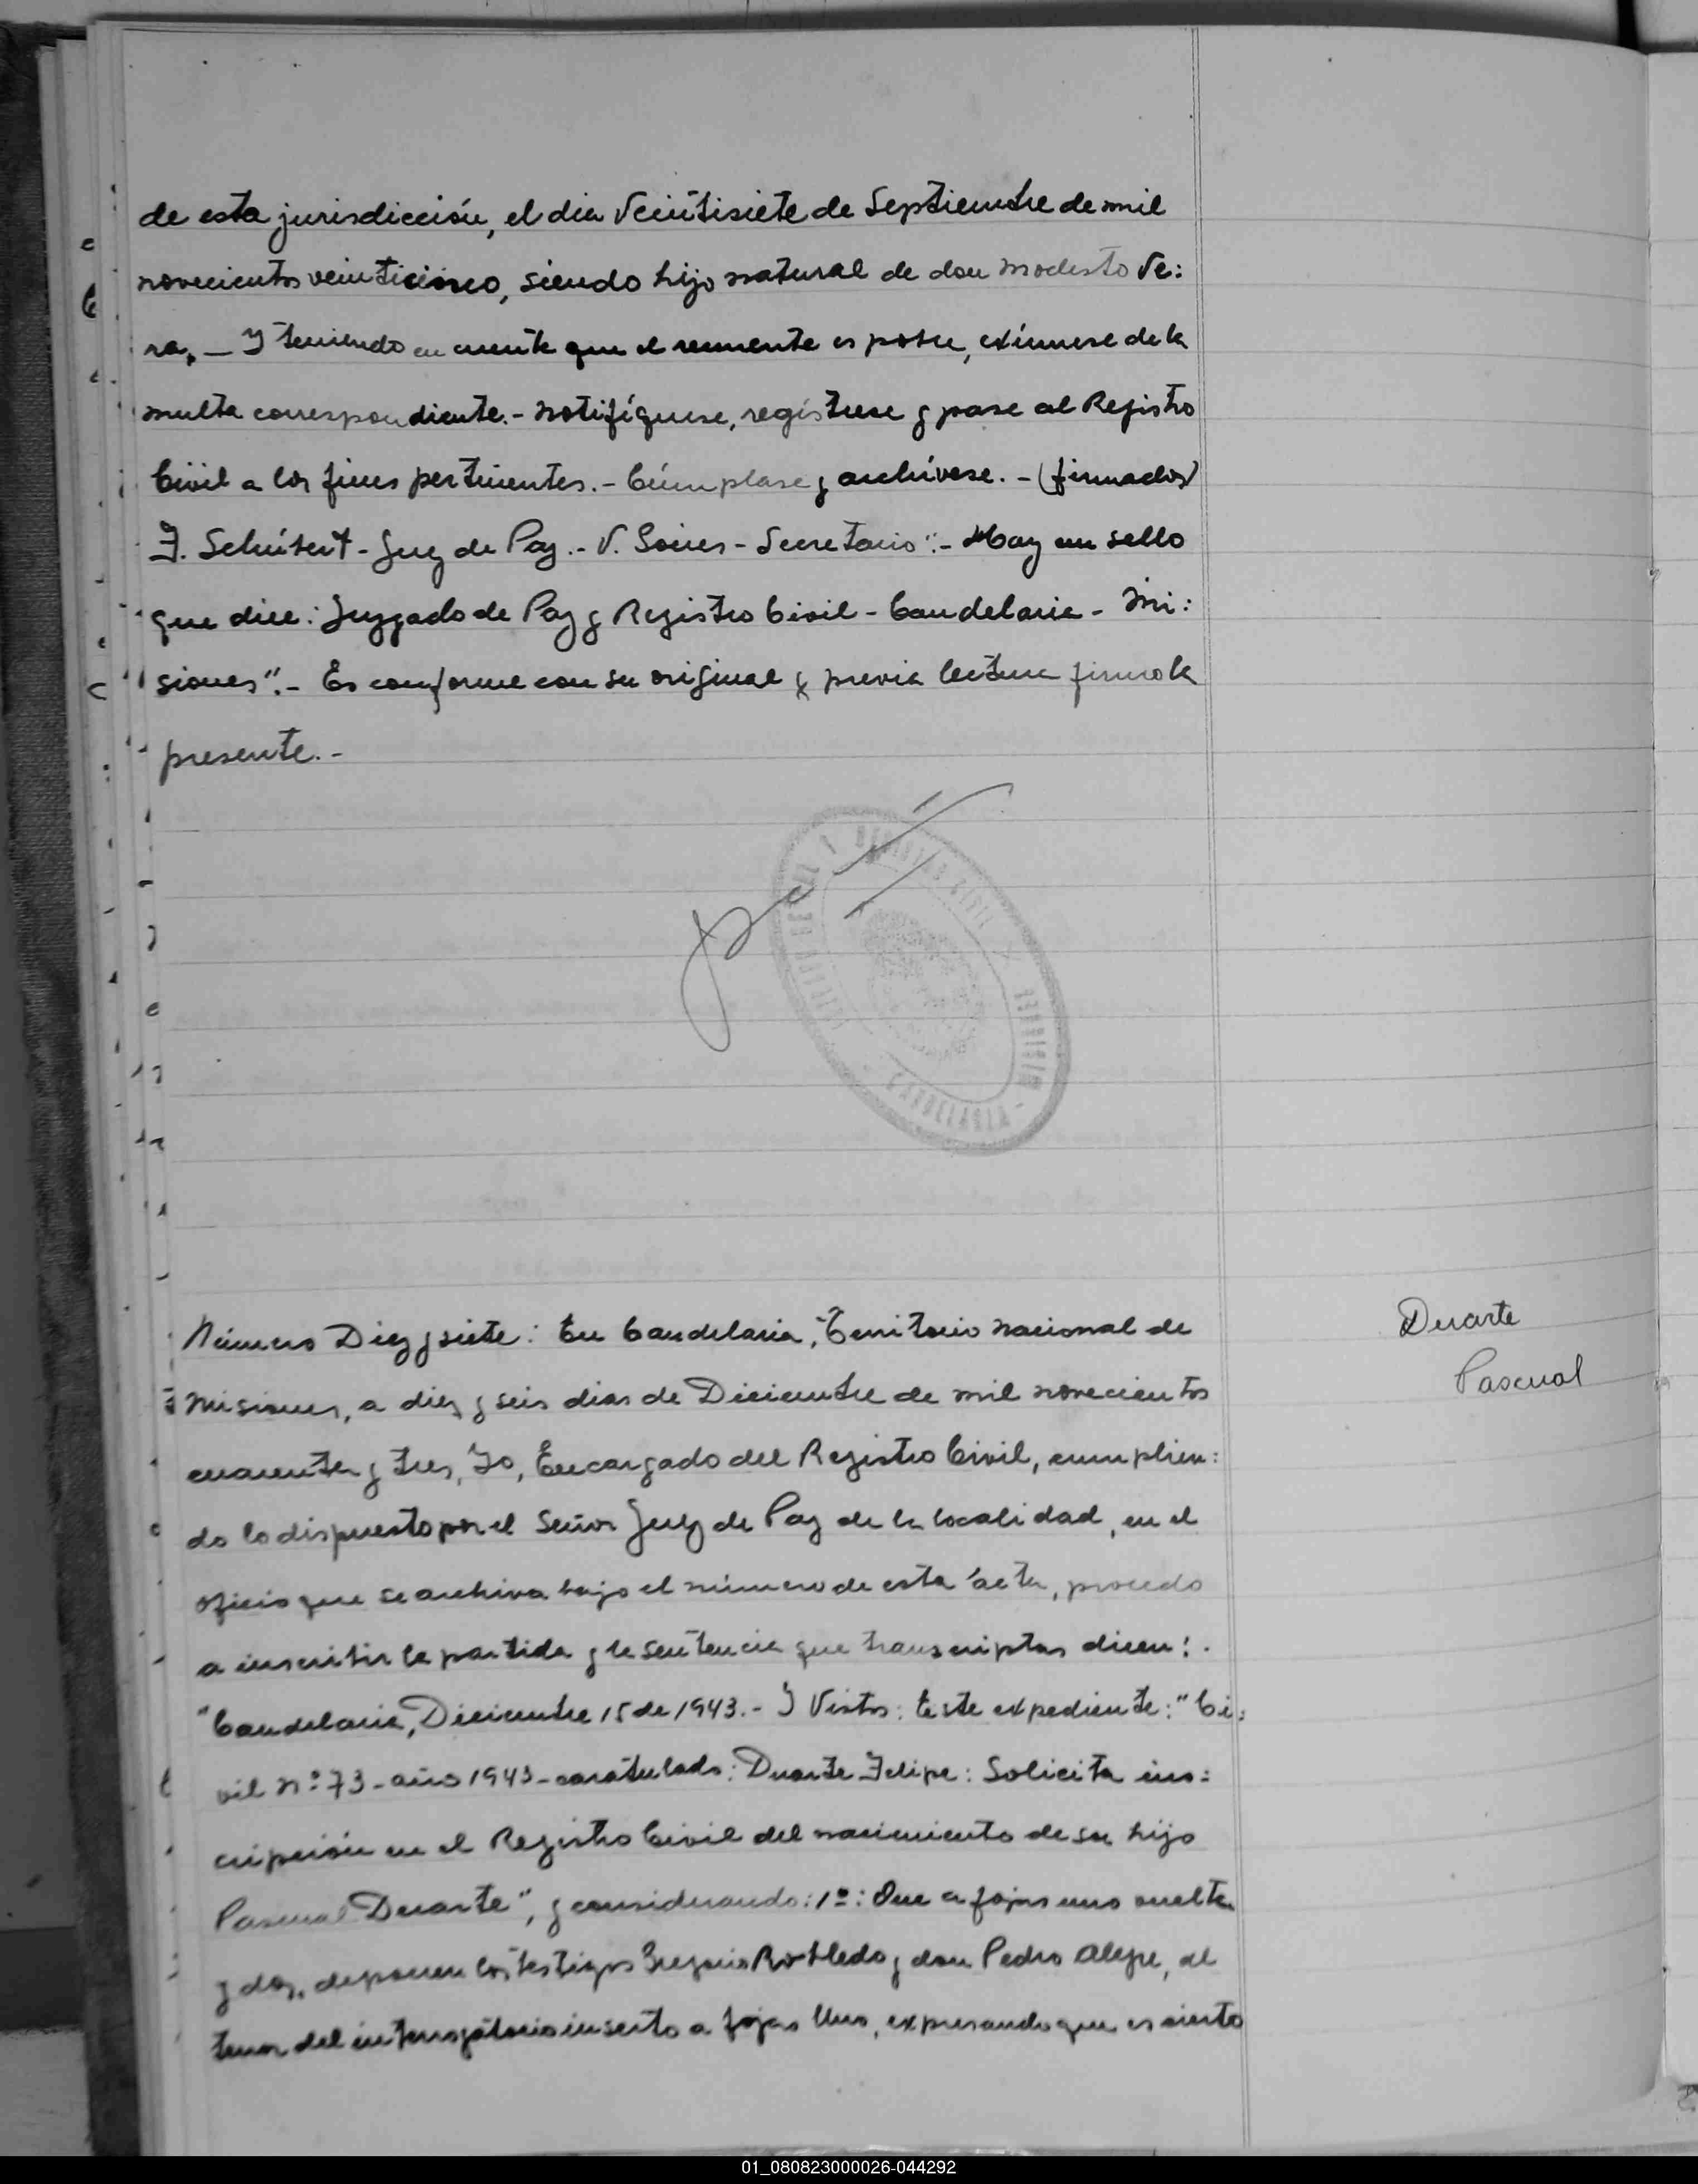 de esta jurisdicción, el dia Veintisiete de Septiembre de mil
novecientos veinticinco, siendo hijo natural de don Modesto Ve:
ra. — Y teniendo en cuenta que el recurrente es pobre, exímese de la
multa correspondiente.- Notifíquese, regístrese y pase al Registro
Civil a los fines pertinentes.- Cúmplase y archívese.- (firmados)
J. Schúbert - Juez de Paz.- V. - Secretario".- Hay un sello
que dice: Juzgado de Paz y Registro Civil - Candelaria - Mi:
siones".- Es conforme con su original y previa lectura firmo la
presente.-
REGISTRO CIVIL
MISIONES
CANDELARIA
Número Diez y siete: En Candelaria, Territorio Nacional de
Misiones, a diez y seis dias de Diciembre de mil novecientos
cuarenta y tres, Yo, Encargado del Registro Civil, cumplien:
do lo dispuesto por el Señor Juez de Paz de la localidad, en el
oficio que se archiva bajo el número de esta acta, procedo
a inscribir la partida y la sentencia que transcriptas dicen:.
"Candelaria, Diciembre 15 de 1943.- Y Vistos: Este expediente: "Ci:
vil Nº 73 - año 1943 - caratulado: Duarte Felipe: Solicita ins:
cripción en el Registro Civil del nacimiento de su hijo
Pascual Duarte", y considerando: 1º: Que a fojas uno vuelta
y dos, deponen los testigos Gregorio Robledo y don Pedro Alegre, al
tenor del interrogatorio inserto a fojas Uno, expresando que es cierto
Duarte
Pascual
01_080823000026-044292